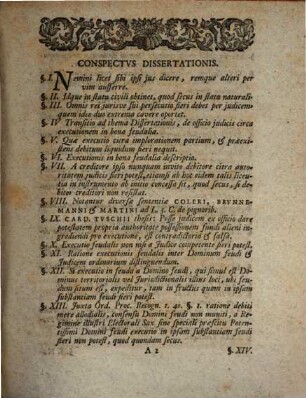 CONSPECTVS DISSERTATIONIS.
§. I. Nemini licet sibi ipsi jus dicere, remque alteri per
vim auferre.
§. II. Idque in statu civili obtinet, quod secus in statu naturali.
§. III. Omnis rei jurisve sui persecutio fieri debet per judicem
quem ideo duo extrema cavere oportet.
§. IV Transitio ad thema Dissertationis, de officio judicis circa
executionem in bona feudalia.
§. V. Quæ executio citra implorationem partium, & præexi-
stens debitum liquidum fieri nequit.
§. VI. Executionis in bona feudalia descriptio.
§. VII. A creditore ipso nunquam invito debitore citra auto-
ritatem judicis fieri potest, etiamsi ab hoc eidem talis licen-
tia in instrumento ab initio concessa sit, quod secus, si de-
bitor creditori non resistat.
§. VIII. Notantur diversæ sententiæ COLERI, BRUNNE-
MANNI & MARTINI ad L. 3. C. de pignorib.
§. IX CARD. TUSCHII thesis: Posse judicem ex officio dare
potestatem propria authoritate possessionem fundi alieni in-
grediendi pro executione, est contradictoria & falsa.
§. X. Executio feudalis non nisi a Judice competente fieri potest.
§. XI. Ratione executionis feudalis inter Dominum feudi &
Judicem ordinarium distinguendum.
§. XII. Si executio in feuda a Domino feudi, qui simul est Do-
minus territorialis vel Jurisdictionalis illius loci, ubi feu-
dum situm est, expeditur, tam in fructus quam in ipsam
substantiam feudi fieri potest.
§. XIII. Juxta Ord. Proc. Recogn. t. 40. §. 1. ratione debiti
mere allodialis, consensu Domini feudi non muniti, a Re-
gimine illustri Electorali Sax. sine speciali præscitu Poten-
tissimi Domini feudi executio in ipsam substantiam feudi
fieri non potest, quod quondam secus.
A 2 §. XIV.